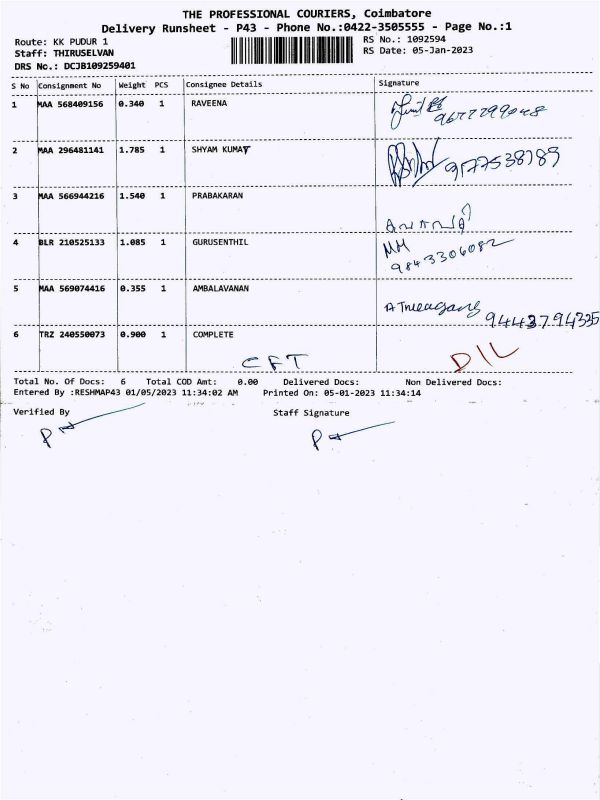 THE PROFESSIONAL COURIERS, Coimbatore
Delivery Runsheet - P43 - Phone No.:0422-3505555 - Page No.:1
Route: KK PUDUR 1 RS No.: 1092594
Staff: THIRUSELVAN RS Date: 05-Jan-2023
DRS No.: DCJB109259401
S No Consignment No Weight PCS Consignee Details Signature
1 MAA 568409156 0.340 1 RAVEENA
2 MAA 296481141 1.785 1 SHYAM KUMAT
9177538789
3 MAA 566944216 1.540 1 PRABAKARAN
4 BLR 210525133 1.085 1 GURUSENTHIL MM
9843306082
5 MAA 569074416 0.355 1 AMBALAVANAN
9443794335
6 TRZ 240550073 0.900 1 COMPLETE
CFT D/L
Total No. Of Docs: 6 Total COD Amt: 0.00 Delivered Docs: Non Delivered Docs:
Entered By :RESHMAP43 01/05/2023 11:34:02 AM Printed On: 05-01-2023 11:34:14
Verified By Staff Signature